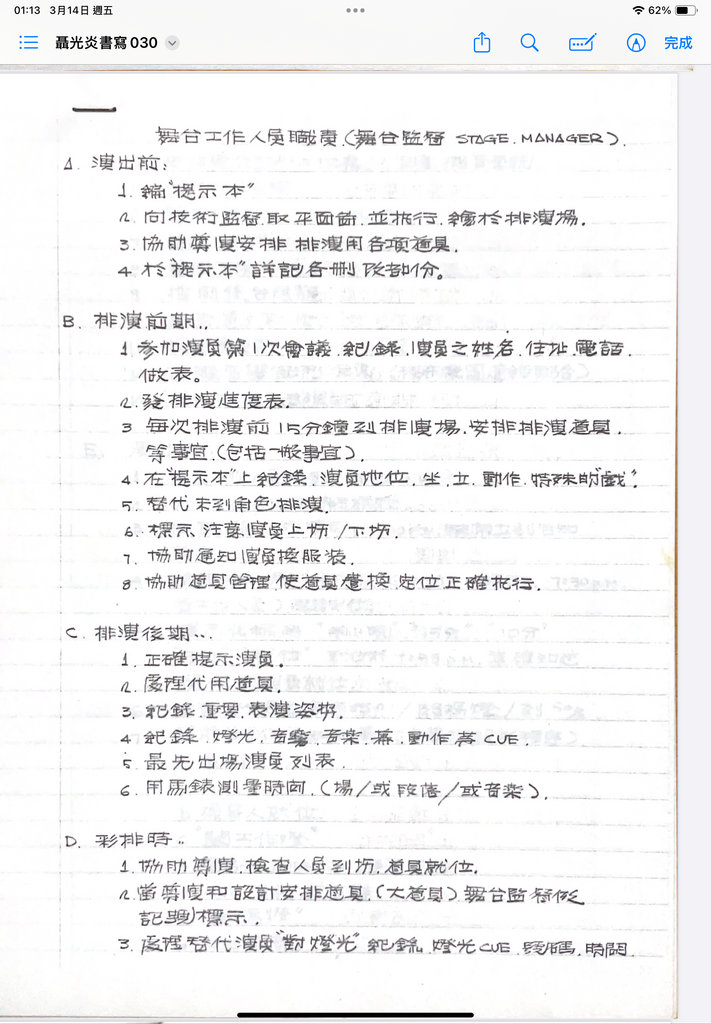 01:13 3月14日 週五
62%
聶光炎書寫 030
完成
舞台工作人員職責.(舞台監督 STAGE. MANAGER).
A. 演出前:
1. 編"提示本"
2. 向技術監督.取平面圖.並執行.繪於排演場.
3. 協助導演安排 排演用各項道具.
4. 於"提示本"詳記各刪改部份。
B. 排演前期..
1. 參加演員第1次會議.紀錄.演員之姓名.住址.電話.
做表。
2. 發排演進度表.
3. 每次排演前 15分鐘到排演場.安排排演道具.
等事宜.(包括一般事宜).
4. 在"提示本"上紀錄.演員地位.坐.立.動作.特殊的"戲".
5. 替代未到角色排演.
6. 標示 注意演員上場/下場.
7. 協助通知演員換服裝.
8. 協助道具管理.使道具遷換.定位正確執行.
C. 排演後期...
1. 正確提示演員.
2. 處理代用道具.
3. 紀錄.重要.表演姿勢.
4. 紀錄.燈光.音響.音樂.幕.動作等CUE.
5. 最先出場演員列表.
6. 用馬錶測量時間.(場/或段落/或音樂).
D. 彩排時..
1. 協助導演.檢查人員到場.道具就位.
2. 當導演和設計安排道具.(大道具)舞台監督做
記號)標示.
3. 處理替代演員"對燈光"紀錄.燈光CUE.號碼.時間.